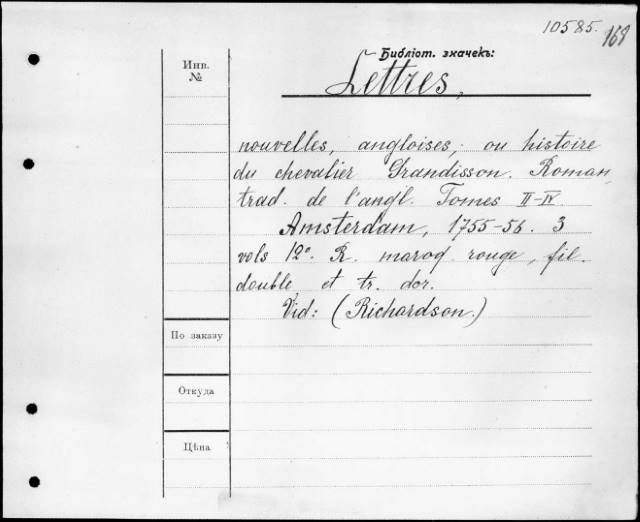 10585.
168
Библіот. значекъ:
Инв.
№
Lettres,
nouvelles, angloises, ou histoire
du chevalier Grandisson. Roman,
trad. de l'angl. Tomes II-IV.
Amsterdam, 1755-56. 3
vols 12°. R. maroq. rouge, fil.
double et tr. dor.
Vid: (Richardson.)
По заказу
Откуда
Цѣна